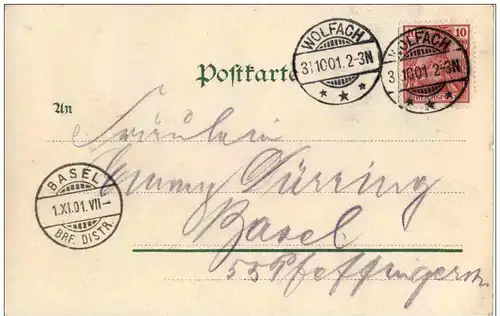 WOLFACH
31.10.01.2-3N
WOLFACH
31.10.01.2-3N
10
Postkarte
An
Fräulein
Emmy Dürring
BASEL
1.XI.01.VII-
BRF. DISTR.
Basel
55 Pfeffingerstr.